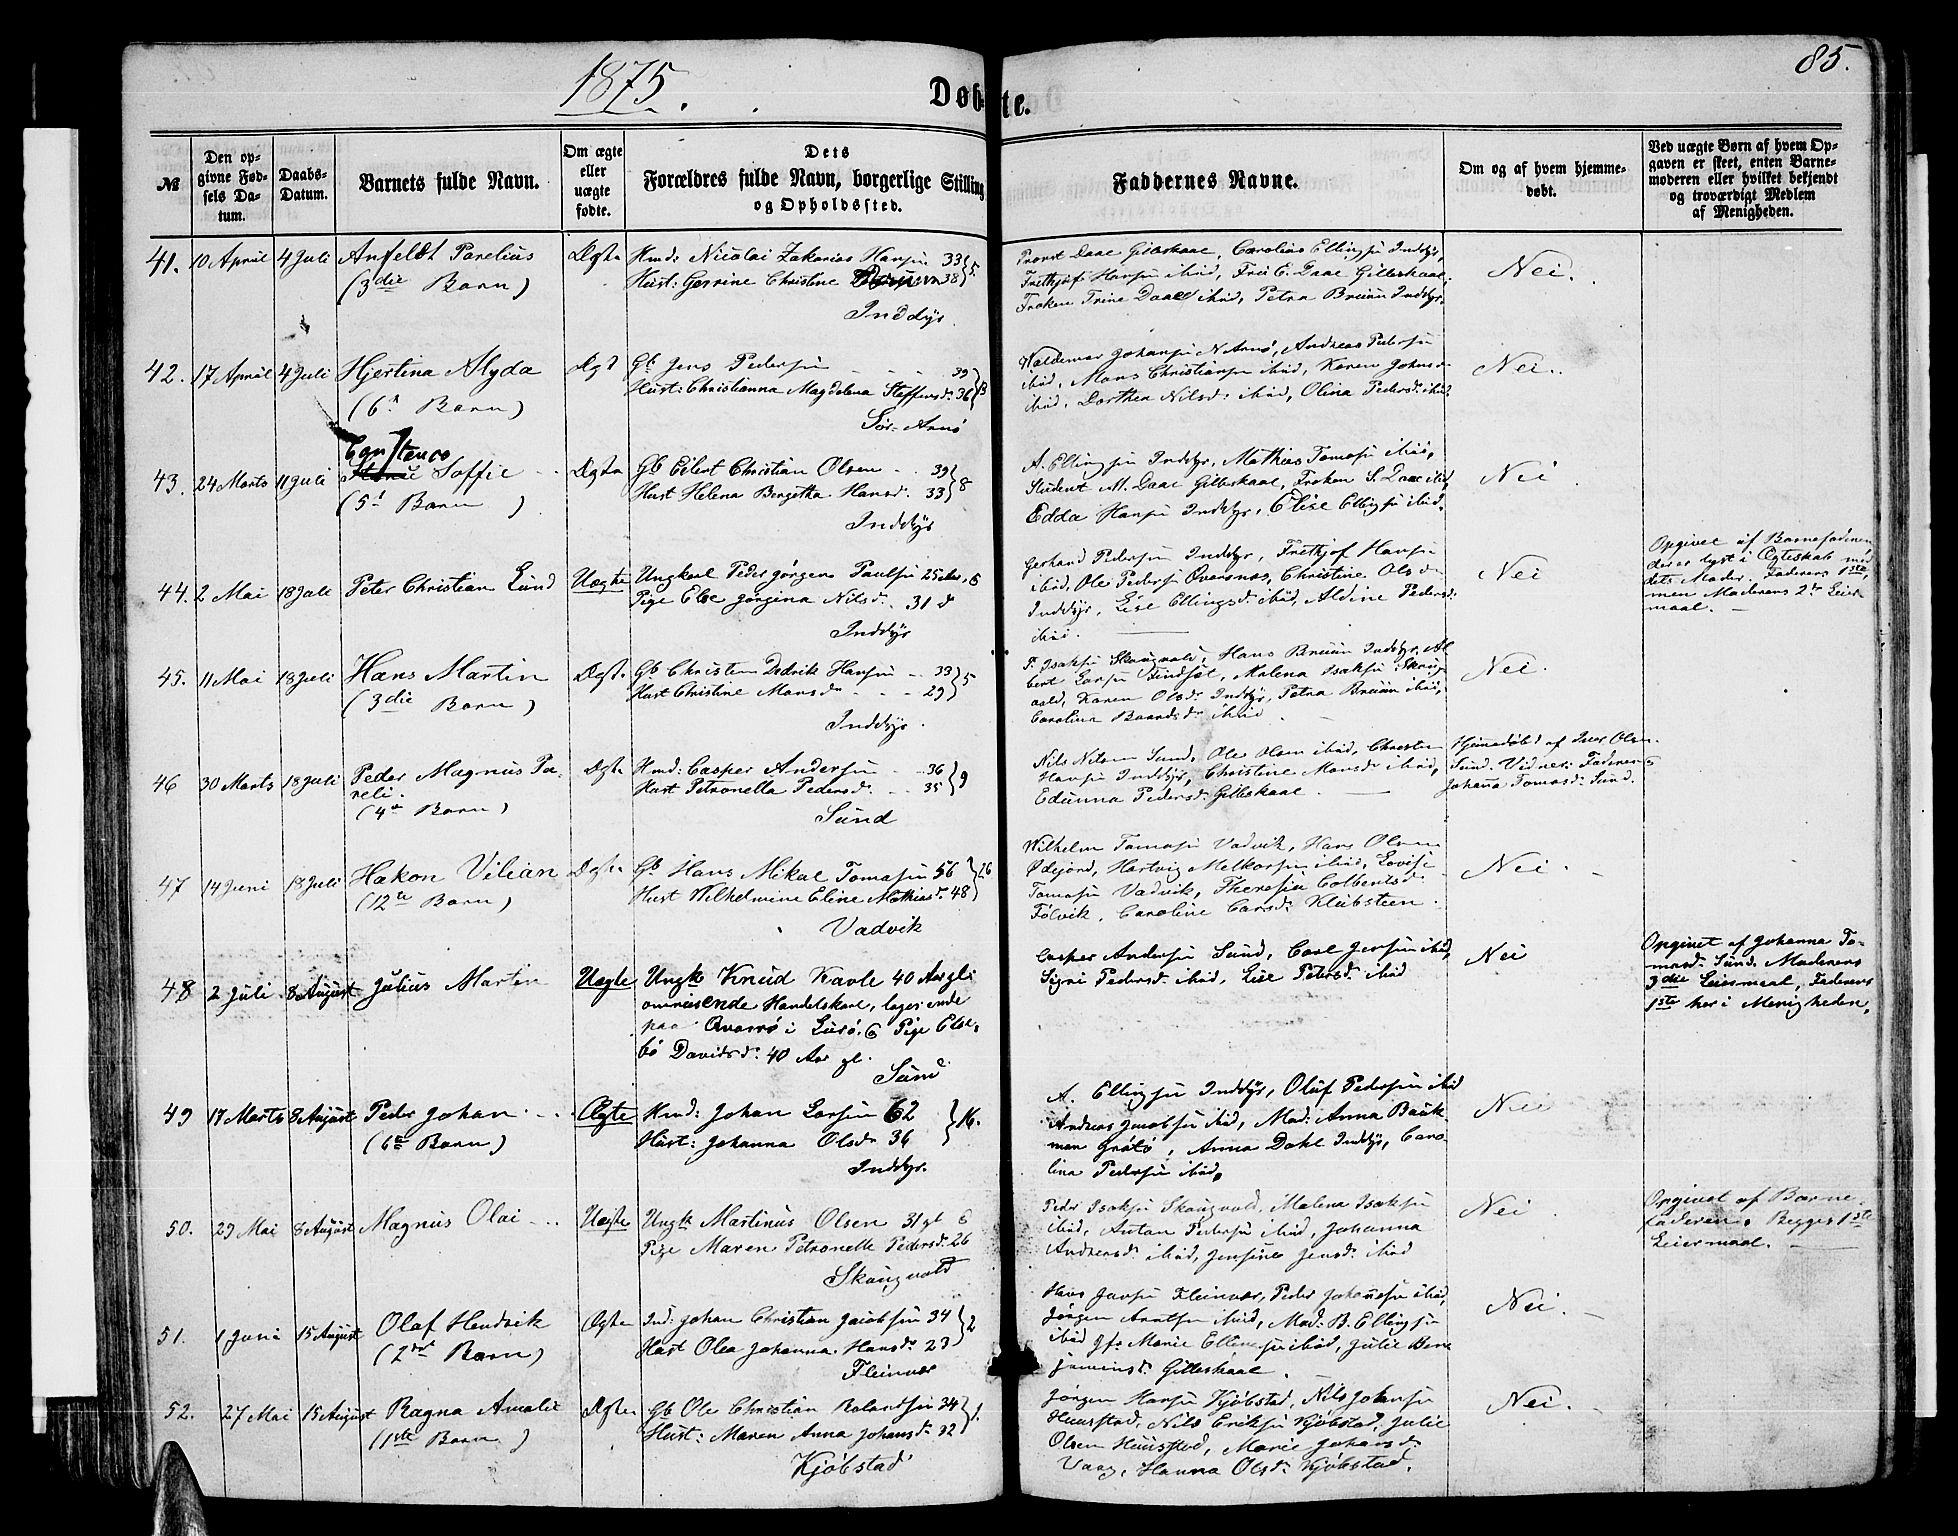 1875.
Døbte.
85.
№
Den opgivne Fødsels Datum.
Daabs-Datum.
Barnets fulde Navn.
Om ægte eller uægte fødte.
Dets Forældres fulde Navn, borgerlige Stilling og Opholdssted.
Faddernes Navne.
Om og af hvem hjemmedøbt.
Ved uægte Børn af hvem Opgaven er skeet, enten Barnemoderen eller hvilket bekjendt og troværdigt Medlem af Menigheden.
41. 10 April 4 Juli Anfeldt Parelius Ægte Hmd: Nicolai Zakarias Hansen 33
(3die Barn) Hust: Gerrine Christine 38 } 5
Inddyr.
Provst Daae Gildeskaal, Carolius Ellingsen Inddyr,
Frethjof Hansen ibid, Fru C. Daae Gildeskaal,
Frøken Trine Daae ibid, Petra Bruun Inddyr.
Nei.
42. 17 April 4 Juli Hjertina Alyda Ægt Gb. Jens Pedersen 39
(6t Barn) Hust: Christianna Magdelena Steffensd. 36 } 13
Sør-Arnø
Valdemar Johansen N. Arnø, Andreas Pedersen
ibid, Mons Christiansen ibid, Karen Johnsd.
ibid, Dorthea Nilsd: ibid, Olina Pedersd. ibid.
Nei.
43. 24 Marts 11 Juli Soffie Ægte Gb Eilert Christian Olsen 39
(5t Barn) Hust Helena Bergetha Hansd. 33 } 8
Inddyr
A. Ellingsen Inddyr, Mathias Tomasen ibid,
Student M. Daae Gildeskaal, Frøken S. Daae ibid,
Edda Hansen Inddyr, Elise Ellingsen ibid.
Nei
44. 2 Mai 18 Juli Peter Christian Lund Uægte Ungkarl Peder Jørgens Paulsen 25 Aar, &
Pige Else Jørgina Nilsd. 31 d
Inddyr
Gerhard Pedersen Inddyr, Frethjof Hansen
ibid, Ole Pedersen Qvarsnæs, Christine Olsd
Inddyr, Lise Ellingsd. ibid, Aldine Pedersd.
ibid.
Nei
Opgivet af Barnefaderen
der er lyst i Ægteskab med
dets Moder. Faderens 1ste,
men Moderens 2det Leier-
maal.
45. 11 Mai 18 Juli Hans Martin Ægte Gb Christen Dedrik Hansen 33
(3die Barn) Hust Christine Monsd. 29 } 5
Inddyr.
P. Isaksen Skougvold, Hans Bruun Inddyr, Al-
bert Larsen Findset, Malena Isaksen Skoug-
vold, Karen Olsd. Inddyr, Petra Bruun ibid,
Carolina Baardsd. ibid.
Nei.
46 30 Marts 18 Juli Peder Magnus Pa- Ægte Hmd: Casper Andersen 36
reli. Hust Petronella Pedersd. 35 } 9
(4de Barn) Sund
Nils Nilsen Sund, Ole Olsen ibid, Christen
Hansen Inddyr, Christine Monsd. ibid,
Edianna Pedersd. Gildeskaal.
Hjemmedøbt af Iver Olsen
Sund. Vidner: Faderen &
Johanna Tomasd. Sund.
47 14 Juni 18 Juli Hakon Vilian Ægte Gb Hans Mikal Tomasen 56
(12te Barn) Hust Wilhelmine Eline Mathiasd. 48 } 26
Vadvik
Wilhelm Tomasen Vadvik, Hans Olsen
Ødejord, Hartvig Melkorsen ibid, Lovise
Tomasen Vadvik, Theresia Colbentsd.
Følvik, Caroline Carsd. Klubsteen.
Nei.
48 2 Juli 8 August Julius Martin Uægte Ungk. Knud Kavle 40 Aar gl.
omreisende Handelskarl, lagerende
paa Qvarø i Lurø, & Pige Else-
bø Davidsd. 40 Aar gl.
Sund
Casper Andersen Sund, Carl Jensen ibid,
Signi Pedersd. ibid, Lise Petersd. ibid
Nei
Opgivet af Johanna To-
masd. Sund. Moderens
3die Leiermaal, Faderens
1ste her i Menigheden.
49 17 Marts 8 August Peder Johan Ægte Hmd: Johan Larsen 62
(6te Barn) Hust: Johanna Olsd. 36 } 16.
Inddyr.
A. Ellingsen Inddyr, Oluf Pedersen ibid
Andreas Jacobsen ibid, Mad: Anna Bauk-
man Grøtø, Anna Dahl Inddyr, Caro-
lina Pedersen ibid.
Nei
50. 29 Mai 8 August Magnus Olai Uægte Ungk Martinus Olsen 31 gl &
Pige Maren Petronelle Pedersd. 26
Skougvold
Peder Isaksen Skougvold, Malena Isaksen
ibid, Antan Pedersen ibid, Johanna
Andreasd. ibid, Jensine Jensd. ibid
Nei
Opgivet af Barne-
faderen. Begges 1ste
Leiermaal.
51. 1 Juni 15 August Olaf Hendrik Ægte Ind. Johan Christian Jacobsen 34
(2det Barn) Hust Olea Johanna Hansd. 23 } 2
Fleinvær
Hans Jansen Fleinvær, Peder Johannesen ibid,
Jørgen Arntsen ibid, Mad. B. Ellingsen
ibid Jfr Marie Ellingsen ibid, Julie Ben-
jaminsd. Gildeskaal.
Nei.
52. 27 Mai 15 August Ragna Amalie Ægte Gb Ole Christian Rolandsen 34
(1ste Barn) Hust: Maren Anna Johansd. 32 } 1.
Kjøbstad
Jørgen Hansen Kjøbstad, Nils Johansen
Huustad, Nils Eriksen Kjøbstad, Julie
Olsen Huustad, Marie Johansd.
Vaag, Hanna Olsd. Kjøbstad.
Nei.